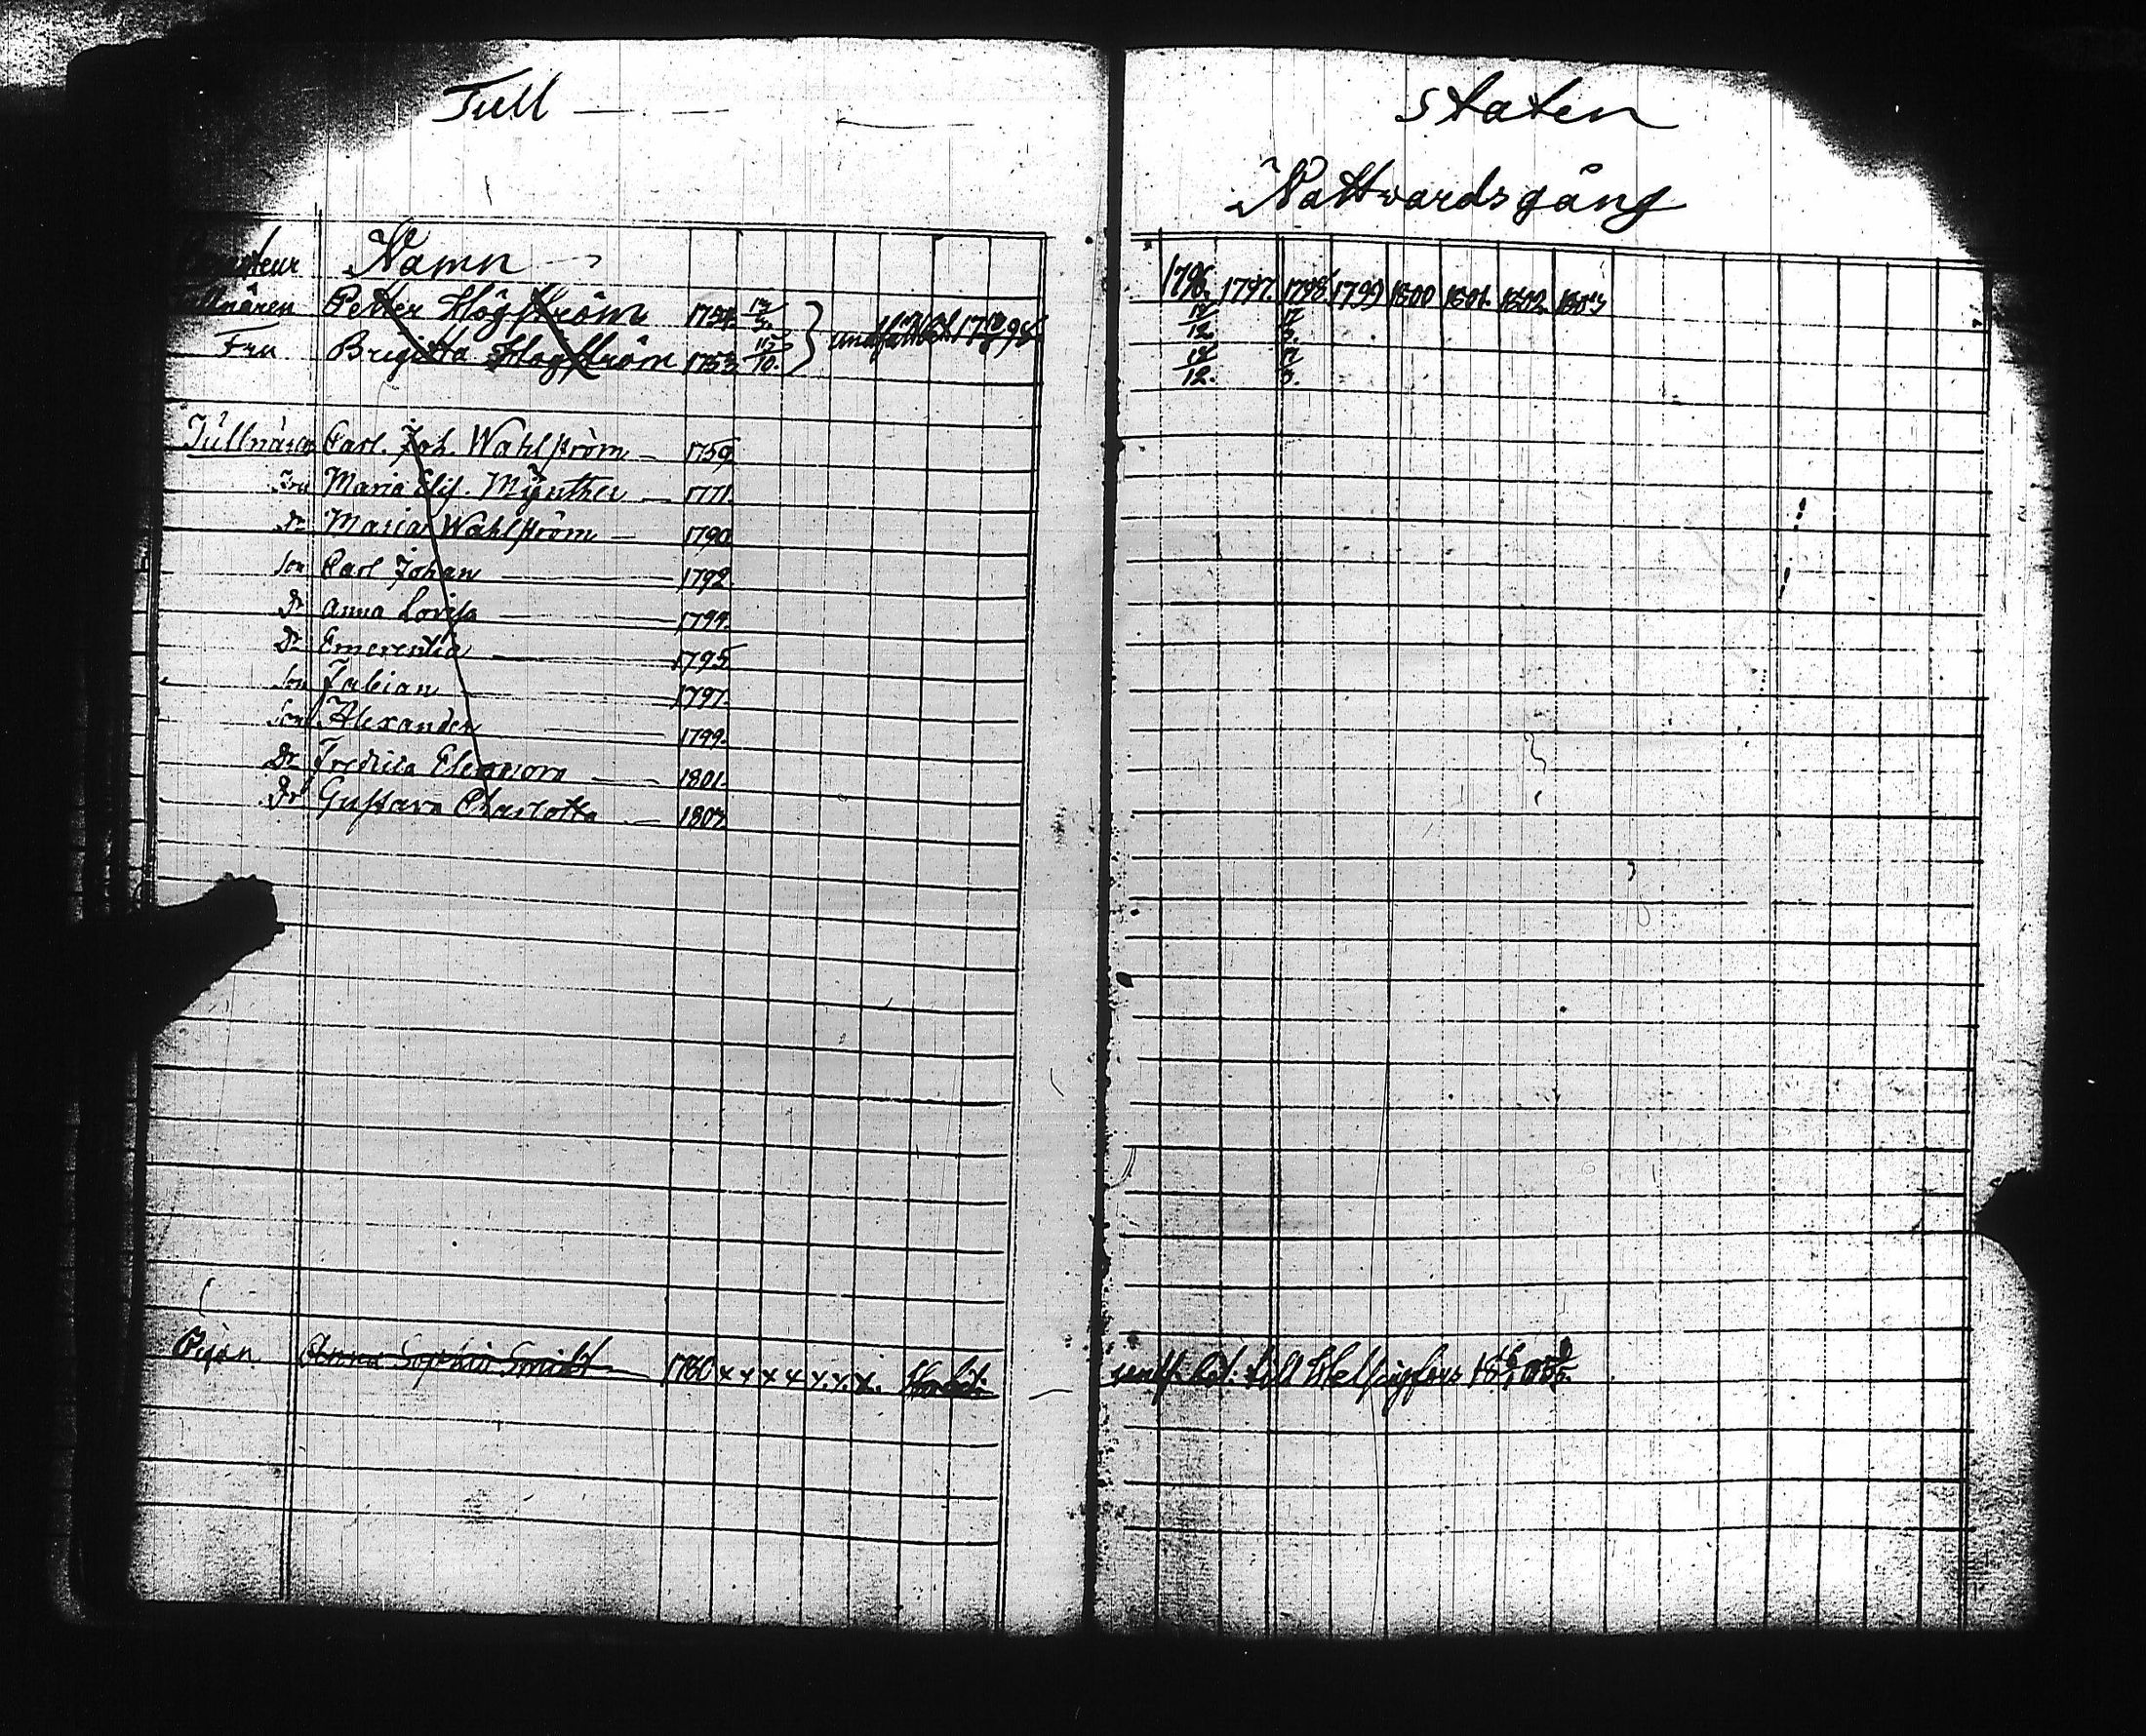 Tull
staten
Nattvardsgång
Namn
1796. 1797. 1798. 1799 1800 1801. 1802. 1803
Petter Högström
12/12. 17/3.
Fru Bregitta Hogström 1753 15/10.
12/12. 17/3.
Tullnären Carl. Joh. Wahlström 1759
Fru Maria Elis. Mÿnther 1771.
Dr Maria Wahlström 1790
Son Carl Johan 1792
Dr Anna Lovisa 1794.
Dr Emerentia 1795
Son Fabian 1797.
Son Alexander 1799.
Dr Fredrica Eleonora 1801.
Dr Gustava Charlotta 1807.
Pigan Anna Sophia Smidt 1780 x x x x x. x. x.
till Helsingfors